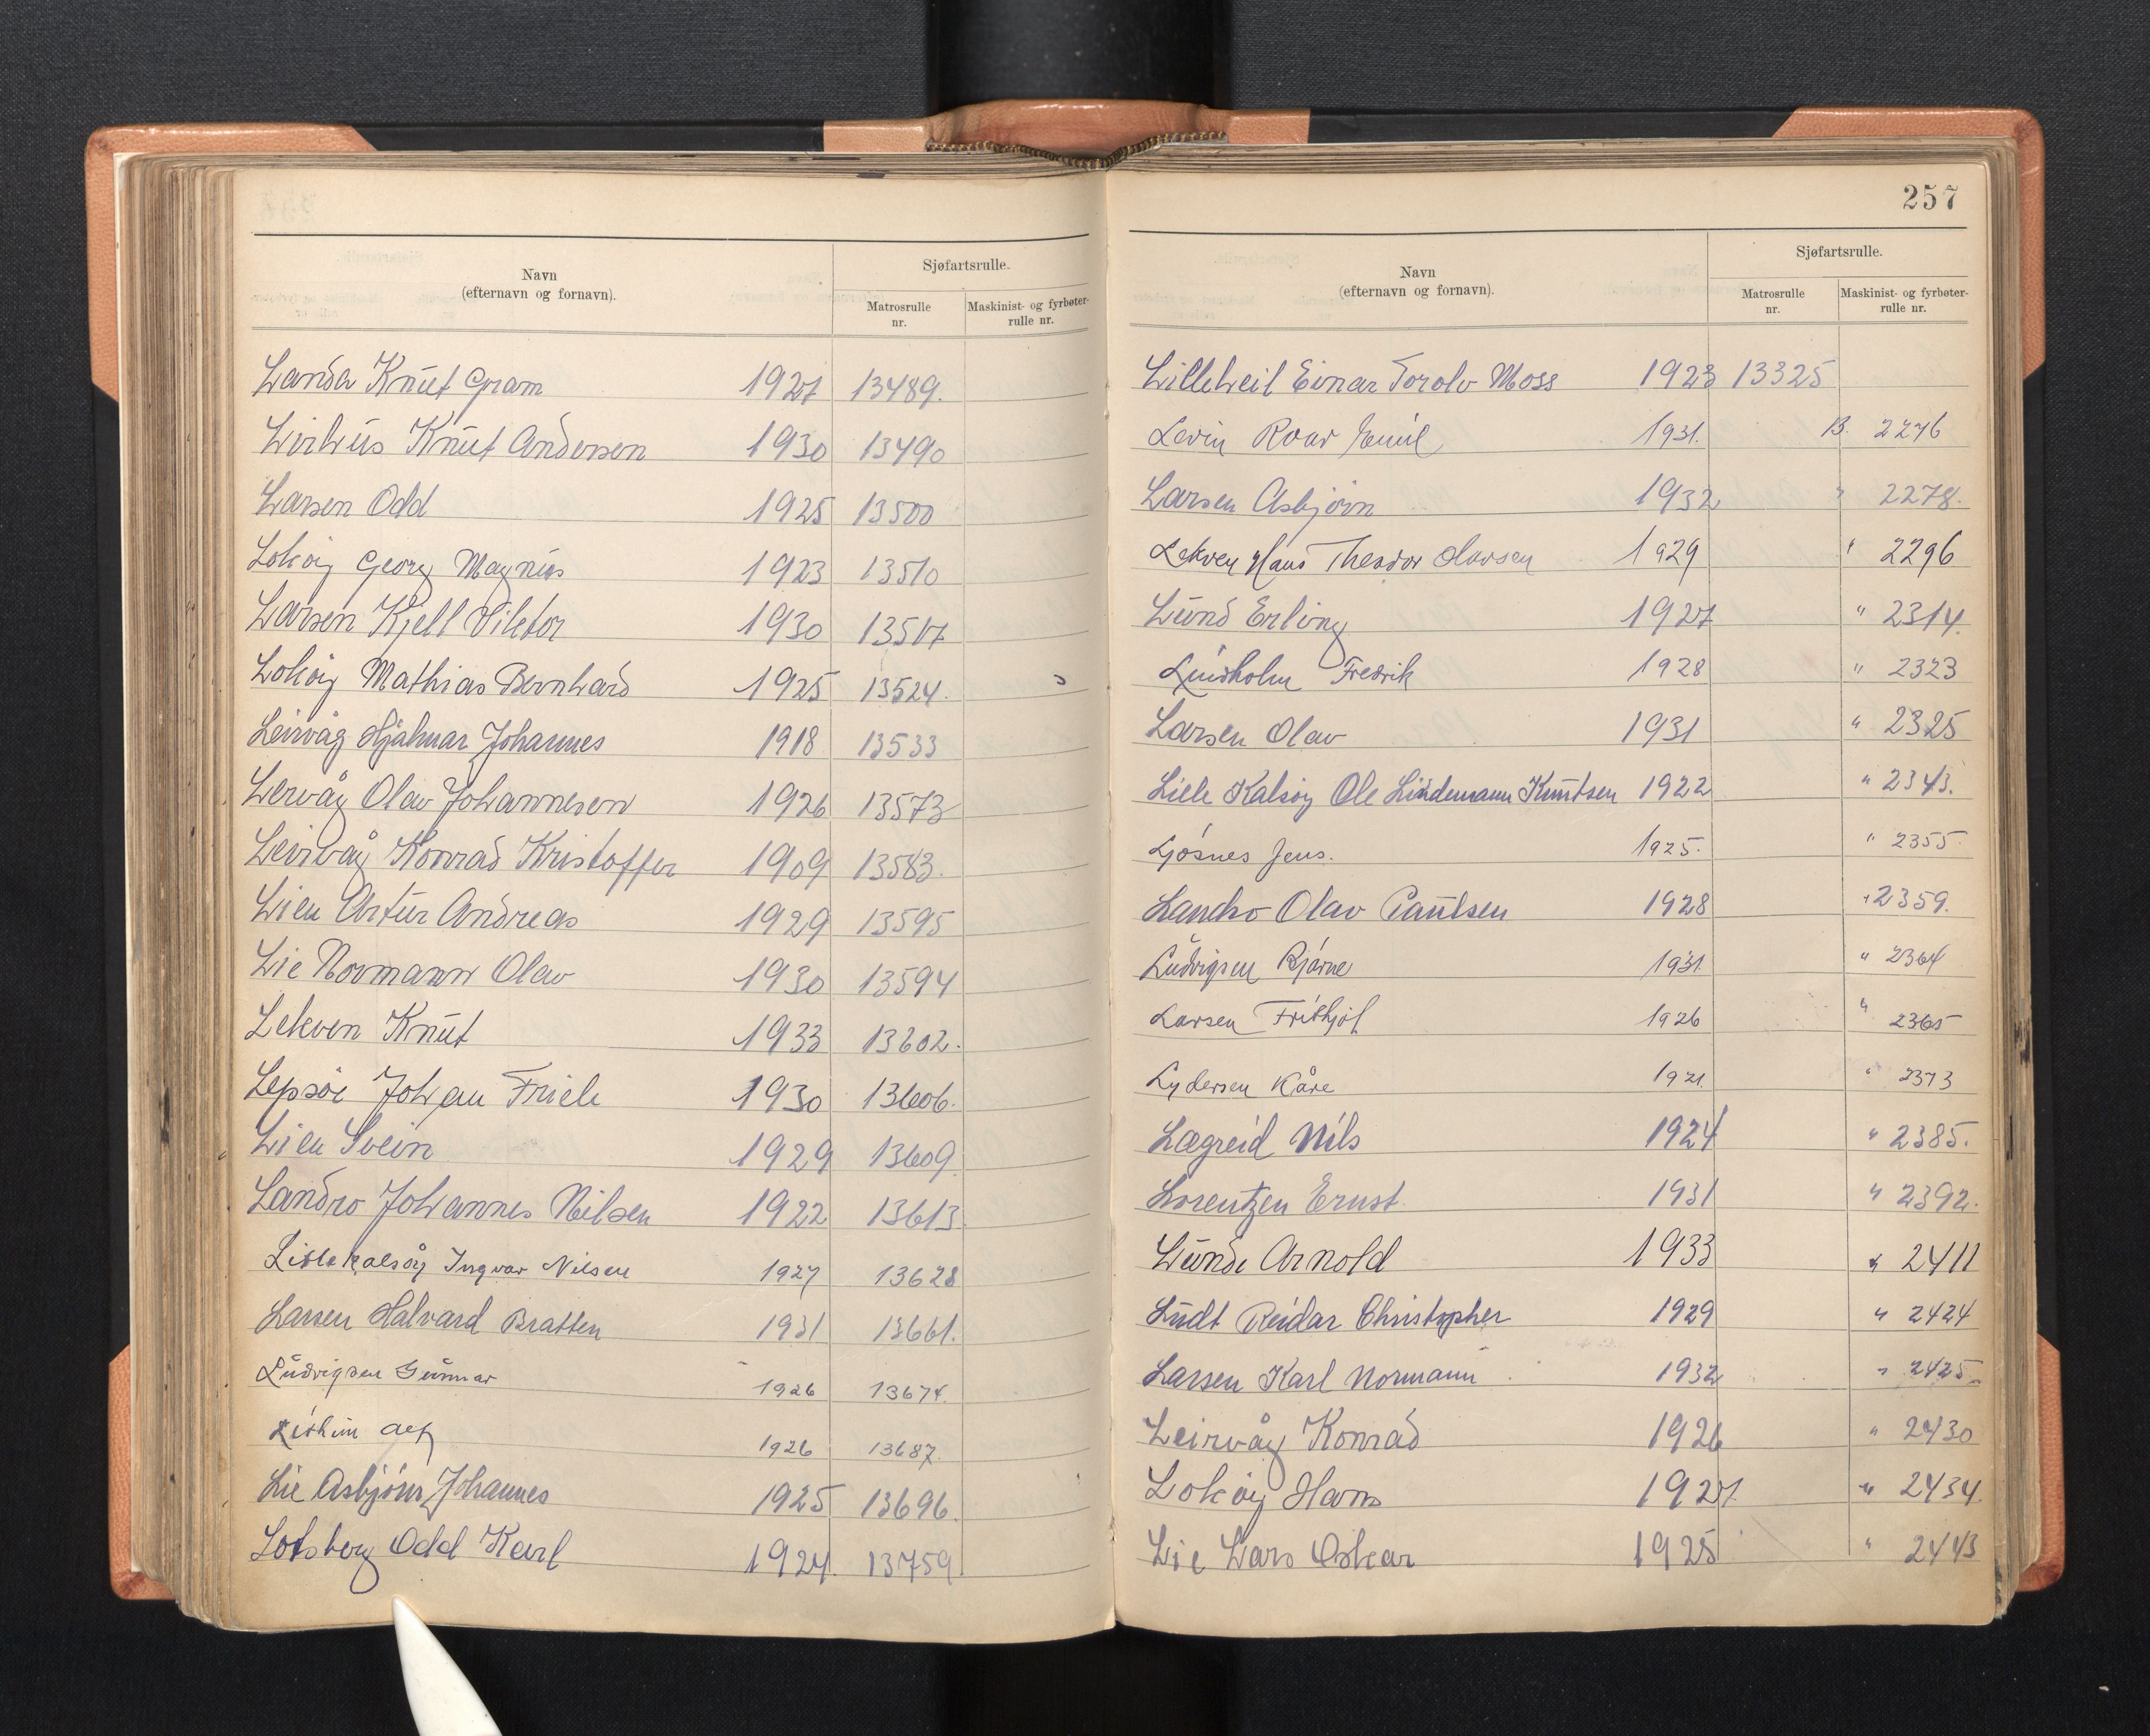 Navn
(efternavn og fornavn).
Sjøfartsrulle.
Matrosrulle
nr.
Maskinist- og fyrbøter-
rulle nr.
Landa Knut Gram 1927 13489.
Knut Andersen 1930 13490
Larsen Odd 1925 13500
Lokøy Georg Magnus 1923 13510
Larsen Kjell Viktor 1930 13517
Lokøy Mathias Bernhard 1925 13524.
Leirvåg Hjalmar Johannes 1918 13533
Lervåg Olav Johannesen 1926 13573
Leirvåg Konrad Kristoffer 1909 13583.
Lien Artur Andreas 1929 13595
Lie Normann Olav 1930 13594
Lekven Knut 1933 13602.
Lepsøe Johan Friele 1930 13606.
Lien Svein 1929 13609
Landro Johannes Nilsen 1922 13613
Lillekalsøy Ingvar Nilsen 1927 13628
Larsen Halvard Bratten 1931 13661.
Ludvigsen Gunnar 1926 13674.
1926 13687.
Lie Asbjørn Johannes 1925 13696.
Lotsberg Odd Karl 1927. 13759
257
Navn
(efternavn og fornavn).
Sjøfartsrulle.
Matrosrulle
nr.
Maskinist- og fyrbøter-
rulle nr.
Einar Torolv Moss 1923 13325
Levin Roar Emil 1931. B. 2276
Larsen Asbjørn 1932 " 2278.
Lekven Hans Theodor Olavsen 1929 " 2296
Lund Erling 1927 " 2314.
Lindholm Fredrik 1928 " 2323
Larsen Olav 1931 " 2325
Lille Kalsøy Ole Lindemann Knutsen 1922 " 2343.
Ljósnes Jens. 1925. " 2355.
Landro Olav Paulsen 1928 " 2359.
Ludvigsen Bjarne 1931 " 2364
Larsen Frithjof 1926 " 2365
Lydersen Kåre 1921. " 2373
Lægreid Nils 1924 " 2385.
Lorentzen Ernst. 1931 " 2392.
Lunde Arnold 1933 " 2411
Ludt Reidar Christopher 1929 " 2424
Larsen Karl Normann 1932 " 2425
Leirvåg Konrad 1926 " 2430
Lokøy Hans 1927. " 2434.
Lie Lars Oskar 1925 " 2443